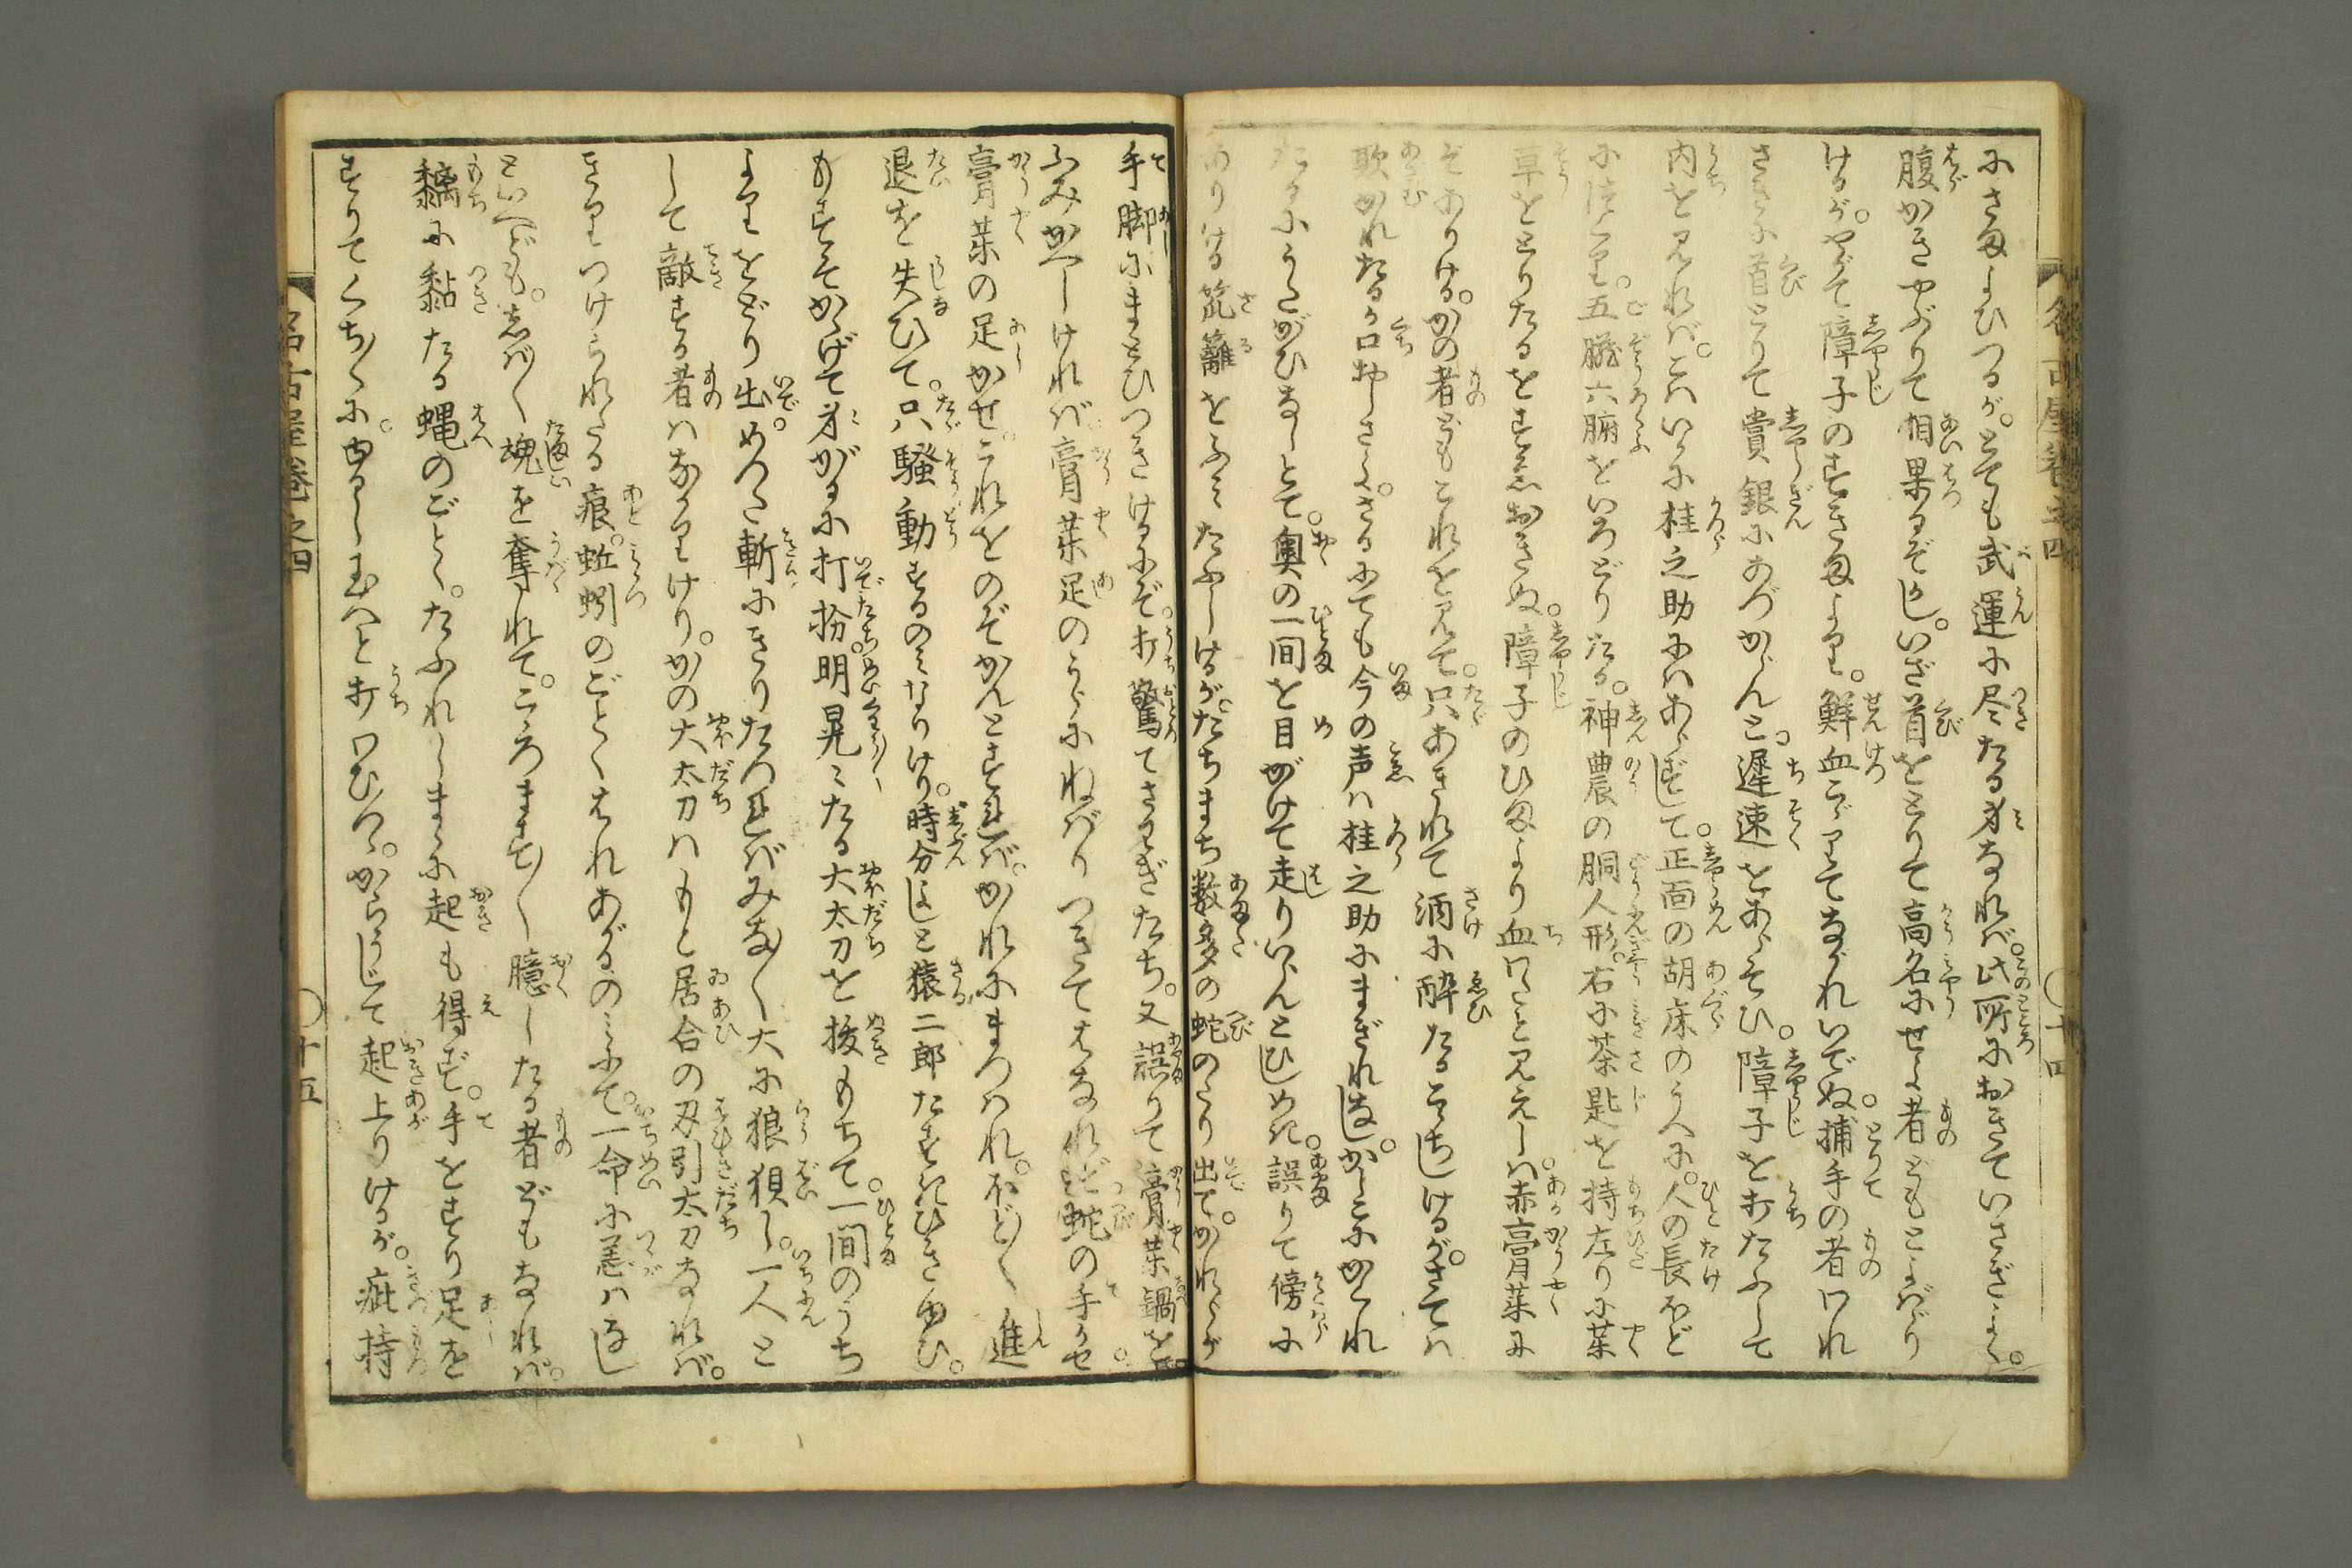 にさまよひつるが。とても武運に尽たる身なれば。此所におきていさぎよく。
腹かきやぶりて相果るぞかし。いざ首をとりて高名にせよ者どもとよばゞり
けるが。やがて障子のすきまより。鮮血こぼりてながれいでぬ。捕手の者われ
さきに首とりて賞銀にあづからんと。遅速をあらそひ。障子を打たふして
内を見れば。こはいかに桂之助にはあらずして。正面の胡床のうへに。人の長ほど
に作り。五臓六腑をいろどりたる。神農の胴人形。右に茶匙を持左りに薬
草をとりたるをすゑおきぬ。障子のひまより血わきと見えしは。赤膏薬に
ぞありける。かの者どもこれを見て。只あきれて酒に酔たるこゝちしけるが。さては
欺かれたるか口おしさよ。さるにても今の声は桂之助にまぎれなし。かしこにかくれ
たるにうたがひなしとて。奥の一間を目がけて走りいらんとひしめき。誤りて傍に
ありける笊籬をふみたふしけるが。たちまち数多の蛇のたり出て。かれらが
手脚にまとひつきけるにぞ。打驚てさわぎたち。又誤りて膏薬鍋を
ふみかへしければ。膏薬足のうらにねばりつきてはなれず。蛇の手かせ。
膏薬の足かせ。これをのぞかんとすれば。かれにまつはれ。ほど〳〵進
退を失ひて。只騒動するのみなりけり。時分はよしと猿二郎たすきひきゆひ。
もすそかゝげて身がるに打扮。明晃〻たる大太刀を抜もちて。一間のうち
よりをどり出。めんた斬にきりたつればみな〳〵大に狼狽し。一人と
して敵する者はなかりけり。かの大太刀はもと居合の刃引太刀なれば。
きりつけられたる痕。蚯蚓のごとくはれあがるのみにて。一命に恙はなし
といへども。しば〳〵魂を奪れて。こゝろまづ〳〵臆したる者どもなれば。
黐に黏たる蝿のごとく。たふれしまゝに起も得ず。手をすり足を
すりてくち〴〵に。ゆるし玉へと打わびつゝ。からうじて起上りけるが。疵持